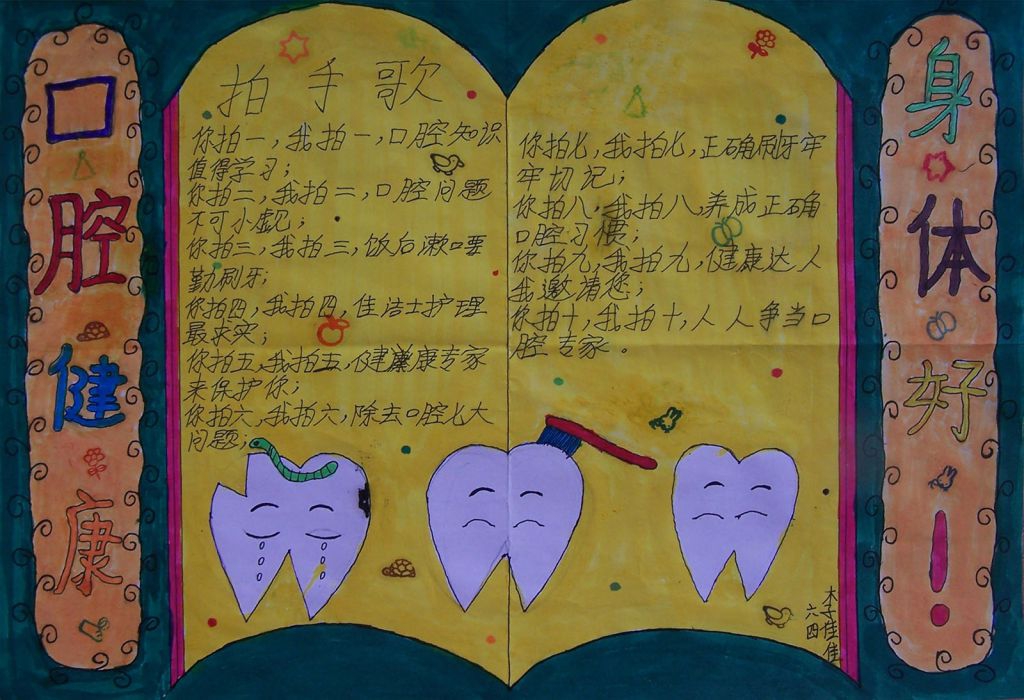 口腔健康
拍手歌
你拍一,我拍一,口腔知识
值得学习;
你拍二,我拍二,口腔问题
不可小视;
你拍三,我拍三,饭后漱口要
勤刷牙;
你拍四,我拍四,佳洁士护理
最求实;
你拍五,我拍五,健康专家
来保护你;
你拍六,我拍六,除去口腔七大
问题;
你拍七,我拍七,正确刷牙牢
牢切记;
你拍八,我拍八,养成正确
口腔习惯;
你拍九,我拍九,健康达人
我邀请您;
你拍十,我拍十,人人争当口
腔专家。
六四
李佳佳
身体好!